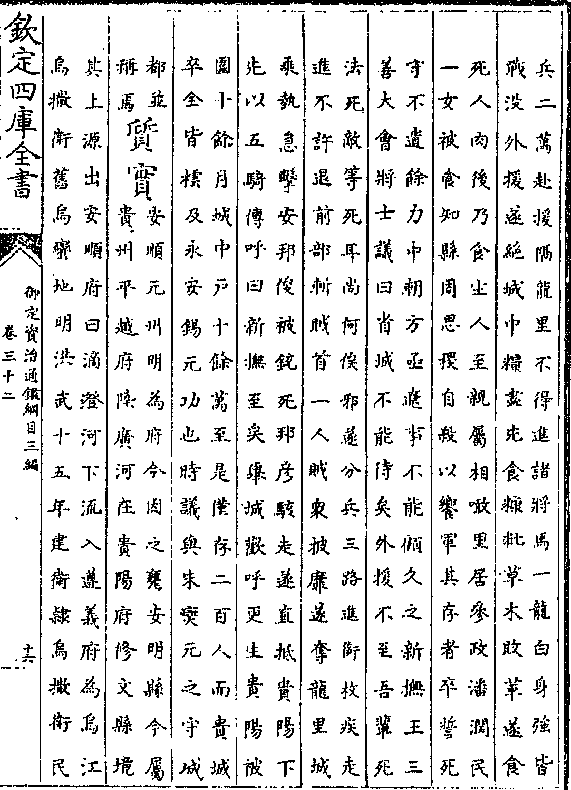 兵二萬赴援隔龍里不得進諸將馬一龍白身強皆
戰没外援遂絶城中糧盡先食糠秕草木敗革遂食
死人肉後乃食生人至親屬相啖里居參政潘潤民
一女被食知縣周思稷自殺以饗軍其存者卒誓死
守不遺餘力中朝方亟遼事不能顧久之新撫王三
善大會將士議曰省城不能待矣外援不至吾輩死
法死敵等死耳尚何俟邪遂分兵三路進銜枚疾走
進不許退前部斬賊首一人賊衆披靡遂奪龍里城
乘執急擊安邦俊被銃死邦彥駭走遂直抵貴陽下
先以五騎傳呼曰新撫至矣舉城歡呼更生貴陽被
圍十餘月城中戶十餘萬至是僅存二百人而貴城
卒全皆橒及永安錫元功也時議與朱燮元之守城
都並
稱焉
質實
安順元州明為府今因之甕安明縣今屬
貴州平越府陸廣河在貴陽府修文縣境
其上源出安順府曰滴澄河下流入遵義府為烏江
烏撒衛舊烏蠻地明洪武十五年建衛隸烏撒衛民
欽定四庫全書
御定資治通鑑綱目三編
卷三十二
十六